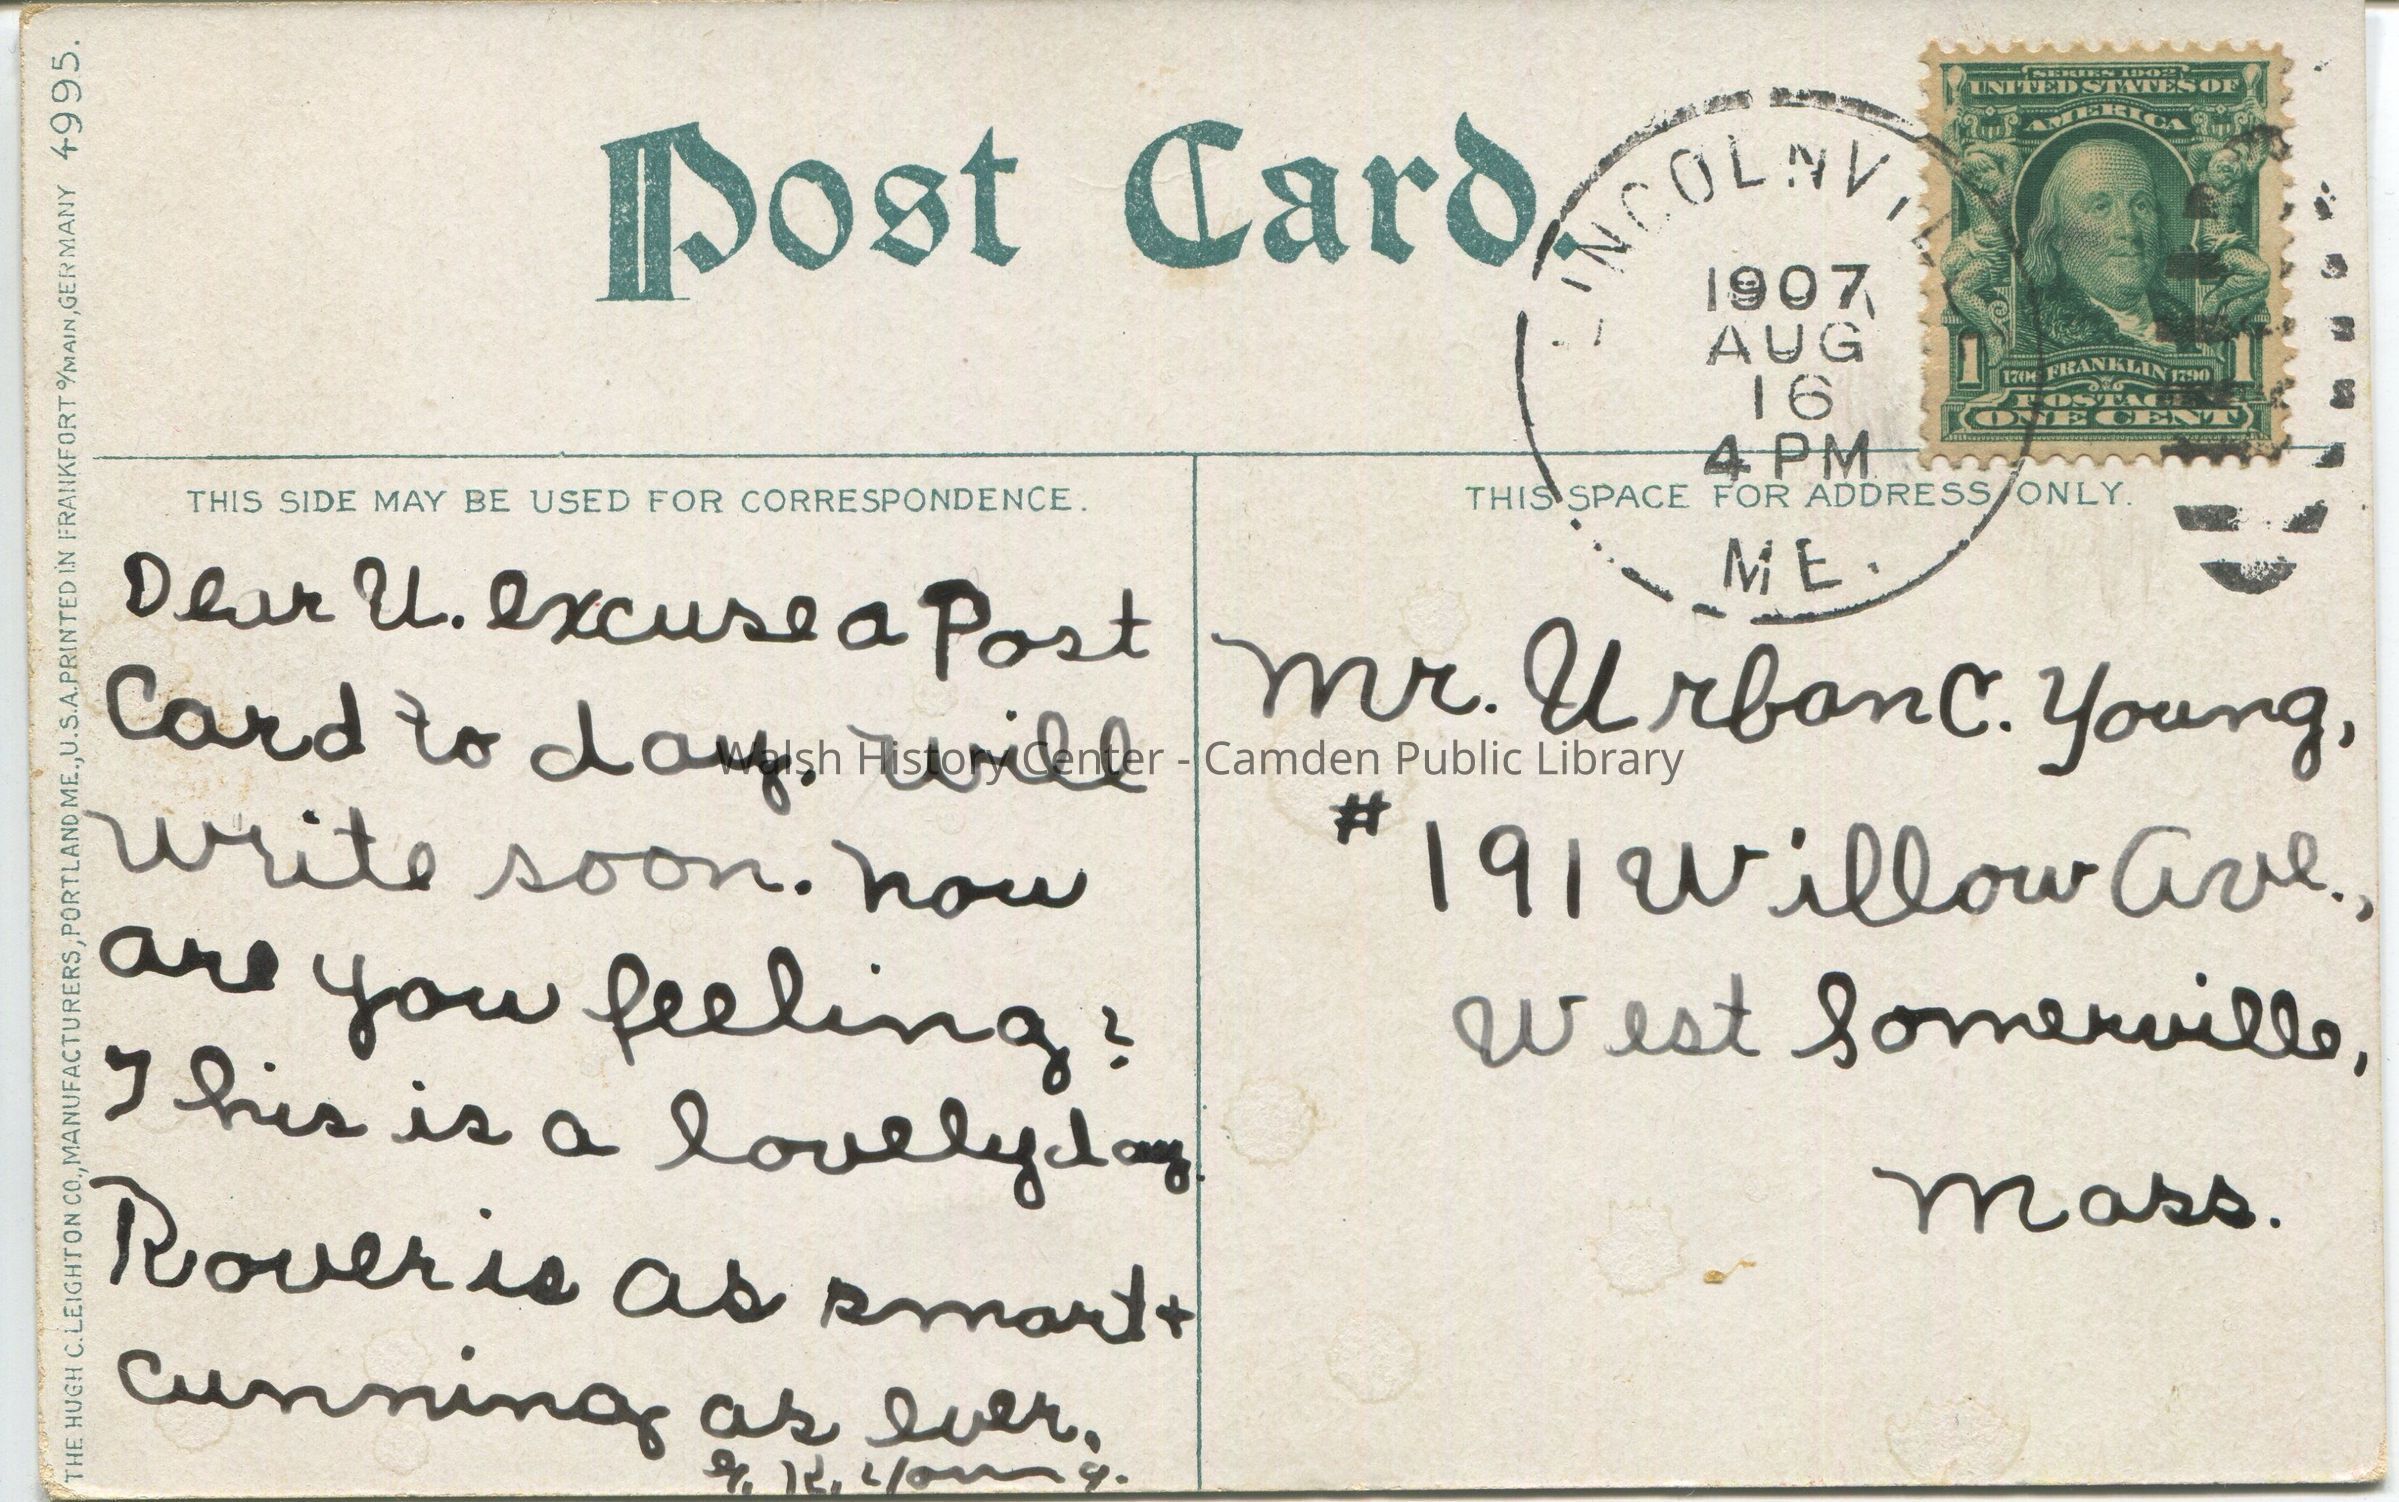 THE HUGH C. LEIGHTON CO., MANUFACTURERS, PORTLAND ME., U.S.A. PRINTED IN FRANKFORT o/MAIN, GERMANY 4995.
Post Card.
INCOLNVI
1907
AUG
16
4 PM
ME.
SERIES 1902
UNITED STATES OF
AMERICA
1 1706 FRANKLIN 1790 1
POSTAGE
ONE CENT
THIS SIDE MAY BE USED FOR CORRESPONDENCE.
Dear U. excuse a Post
Card to day. Will
write soon. How
are you feeling?
This is a lovely day.
Rover is as smart +
cunning as ever.
K. Young.
THIS SPACE FOR ADDRESS ONLY.
Mr. Urban C. Young,
# 191 Willow Ave.,
West Somerville,
Mass.
Walsh History Center - Camden Public Library